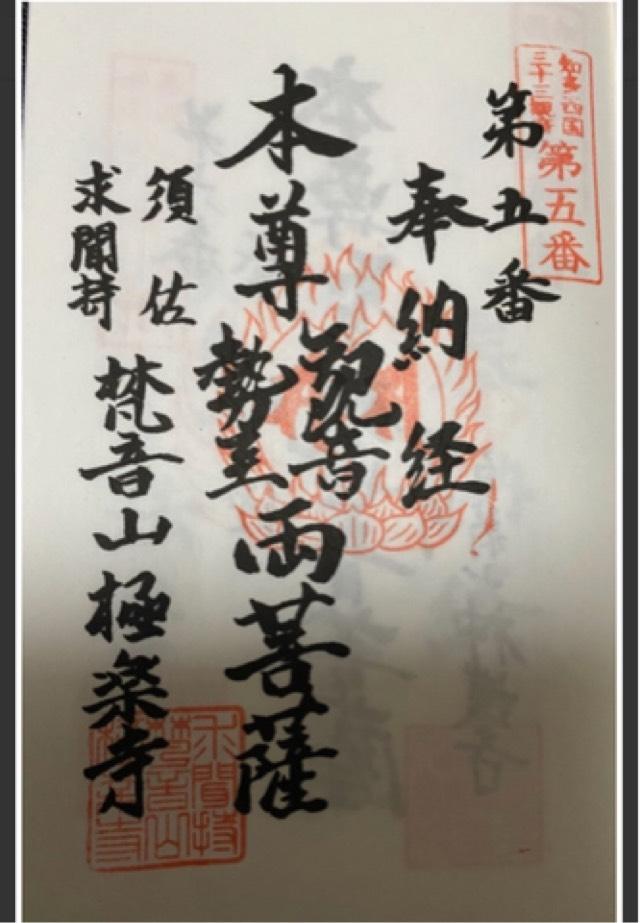 知多四国
三十三観音
第五番
第五番
奉納経
本尊
観音
勢至
両菩薩
須佐
求聞持
梵音山極楽寺
求聞持
梵音山
極楽寺